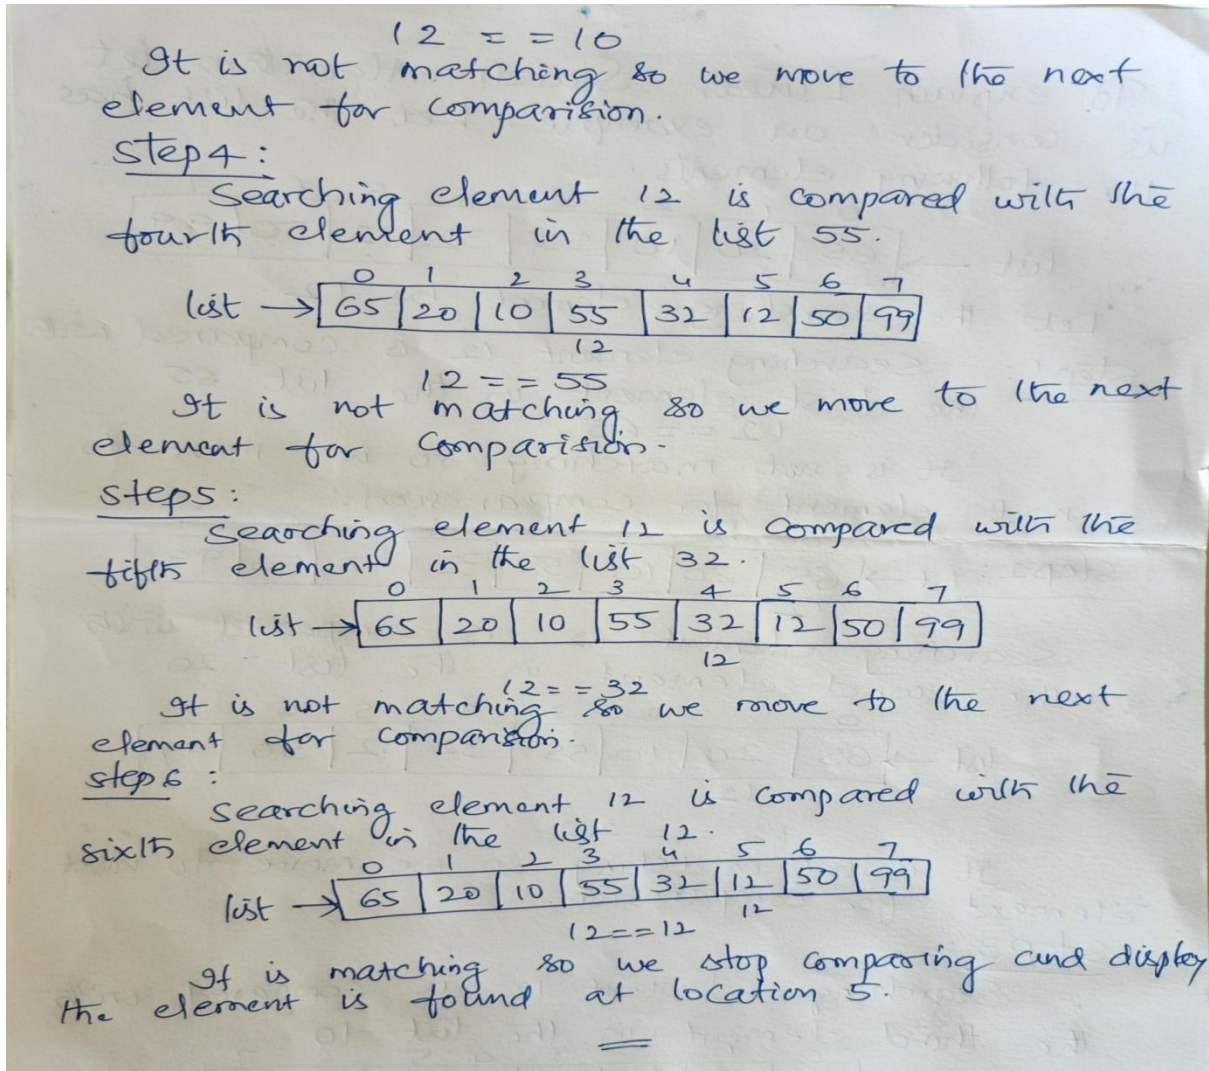 12 = = 10
It is not matching so we move to the next
element for comparision.
Step4:
Searching element 12 is compared with the
fourth element in the list 55.
0 1 2 3 4 5 6 7
list → 65 20 10 55 32 12 50 99
12
12 = = 55
It is not matching so we move to the next
element for comparision.
Step5:
Searching element 12 is compared with the
fifth element in the list 32.
0 1 2 3 4 5 6 7
list → 65 20 10 55 32 12 50 99
12
12 = = 32
It is not matching so we move to the next
element for comparision.
Step6 :
Searching element 12 is compared with the
sixth element in the list 12.
0 1 2 3 4 5 6 7
list → 65 20 10 55 32 12 50 99
12
12 = = 12
It is matching so we stop comparing and display
the element is found at location 5.